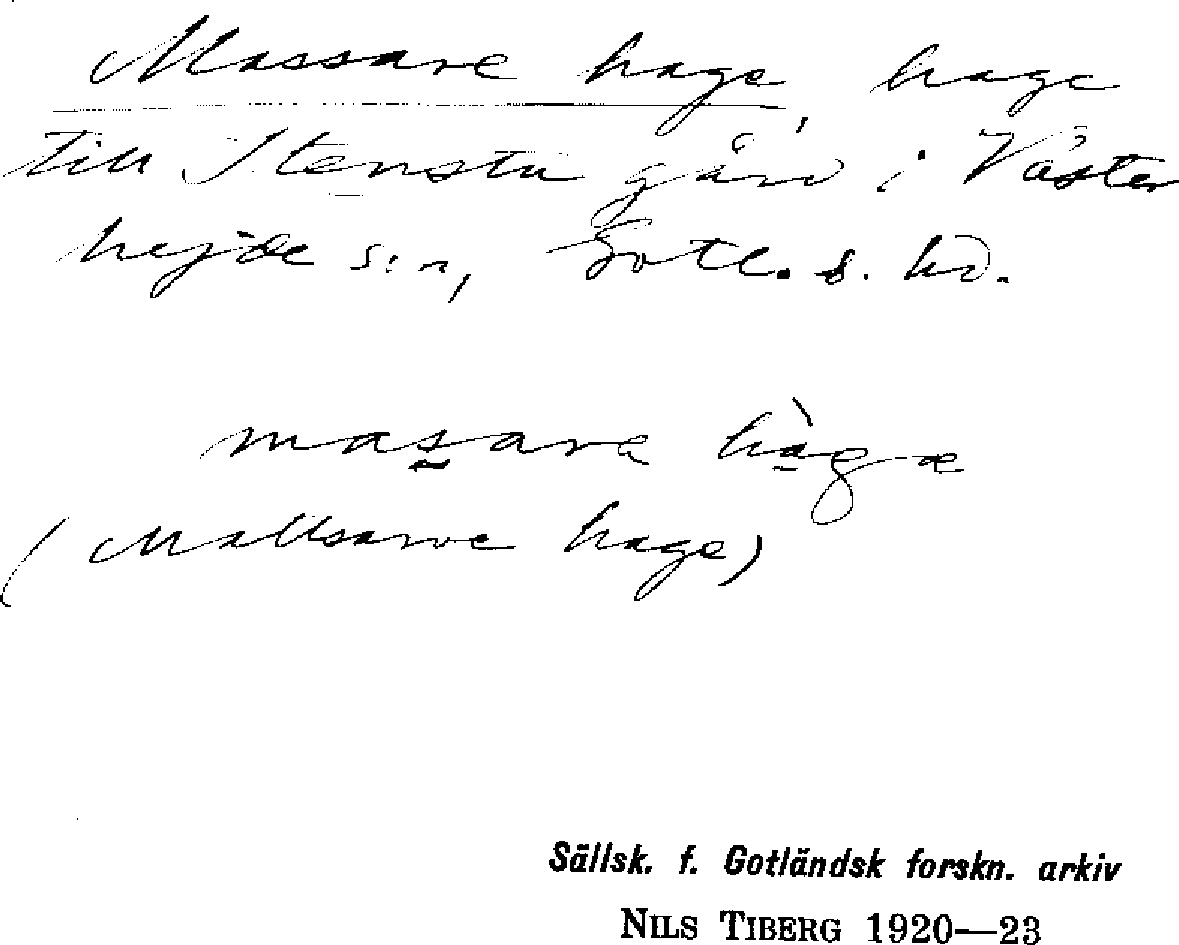 Massare hage, hage
till Stensta gård i Väster
hejde s:n, Gotl. s. hd.
masara hàgæ
(Mallsarve hage)
Sällsk. f. Gotländsk forskn. arkiv
NILS TIBERG 1920—23